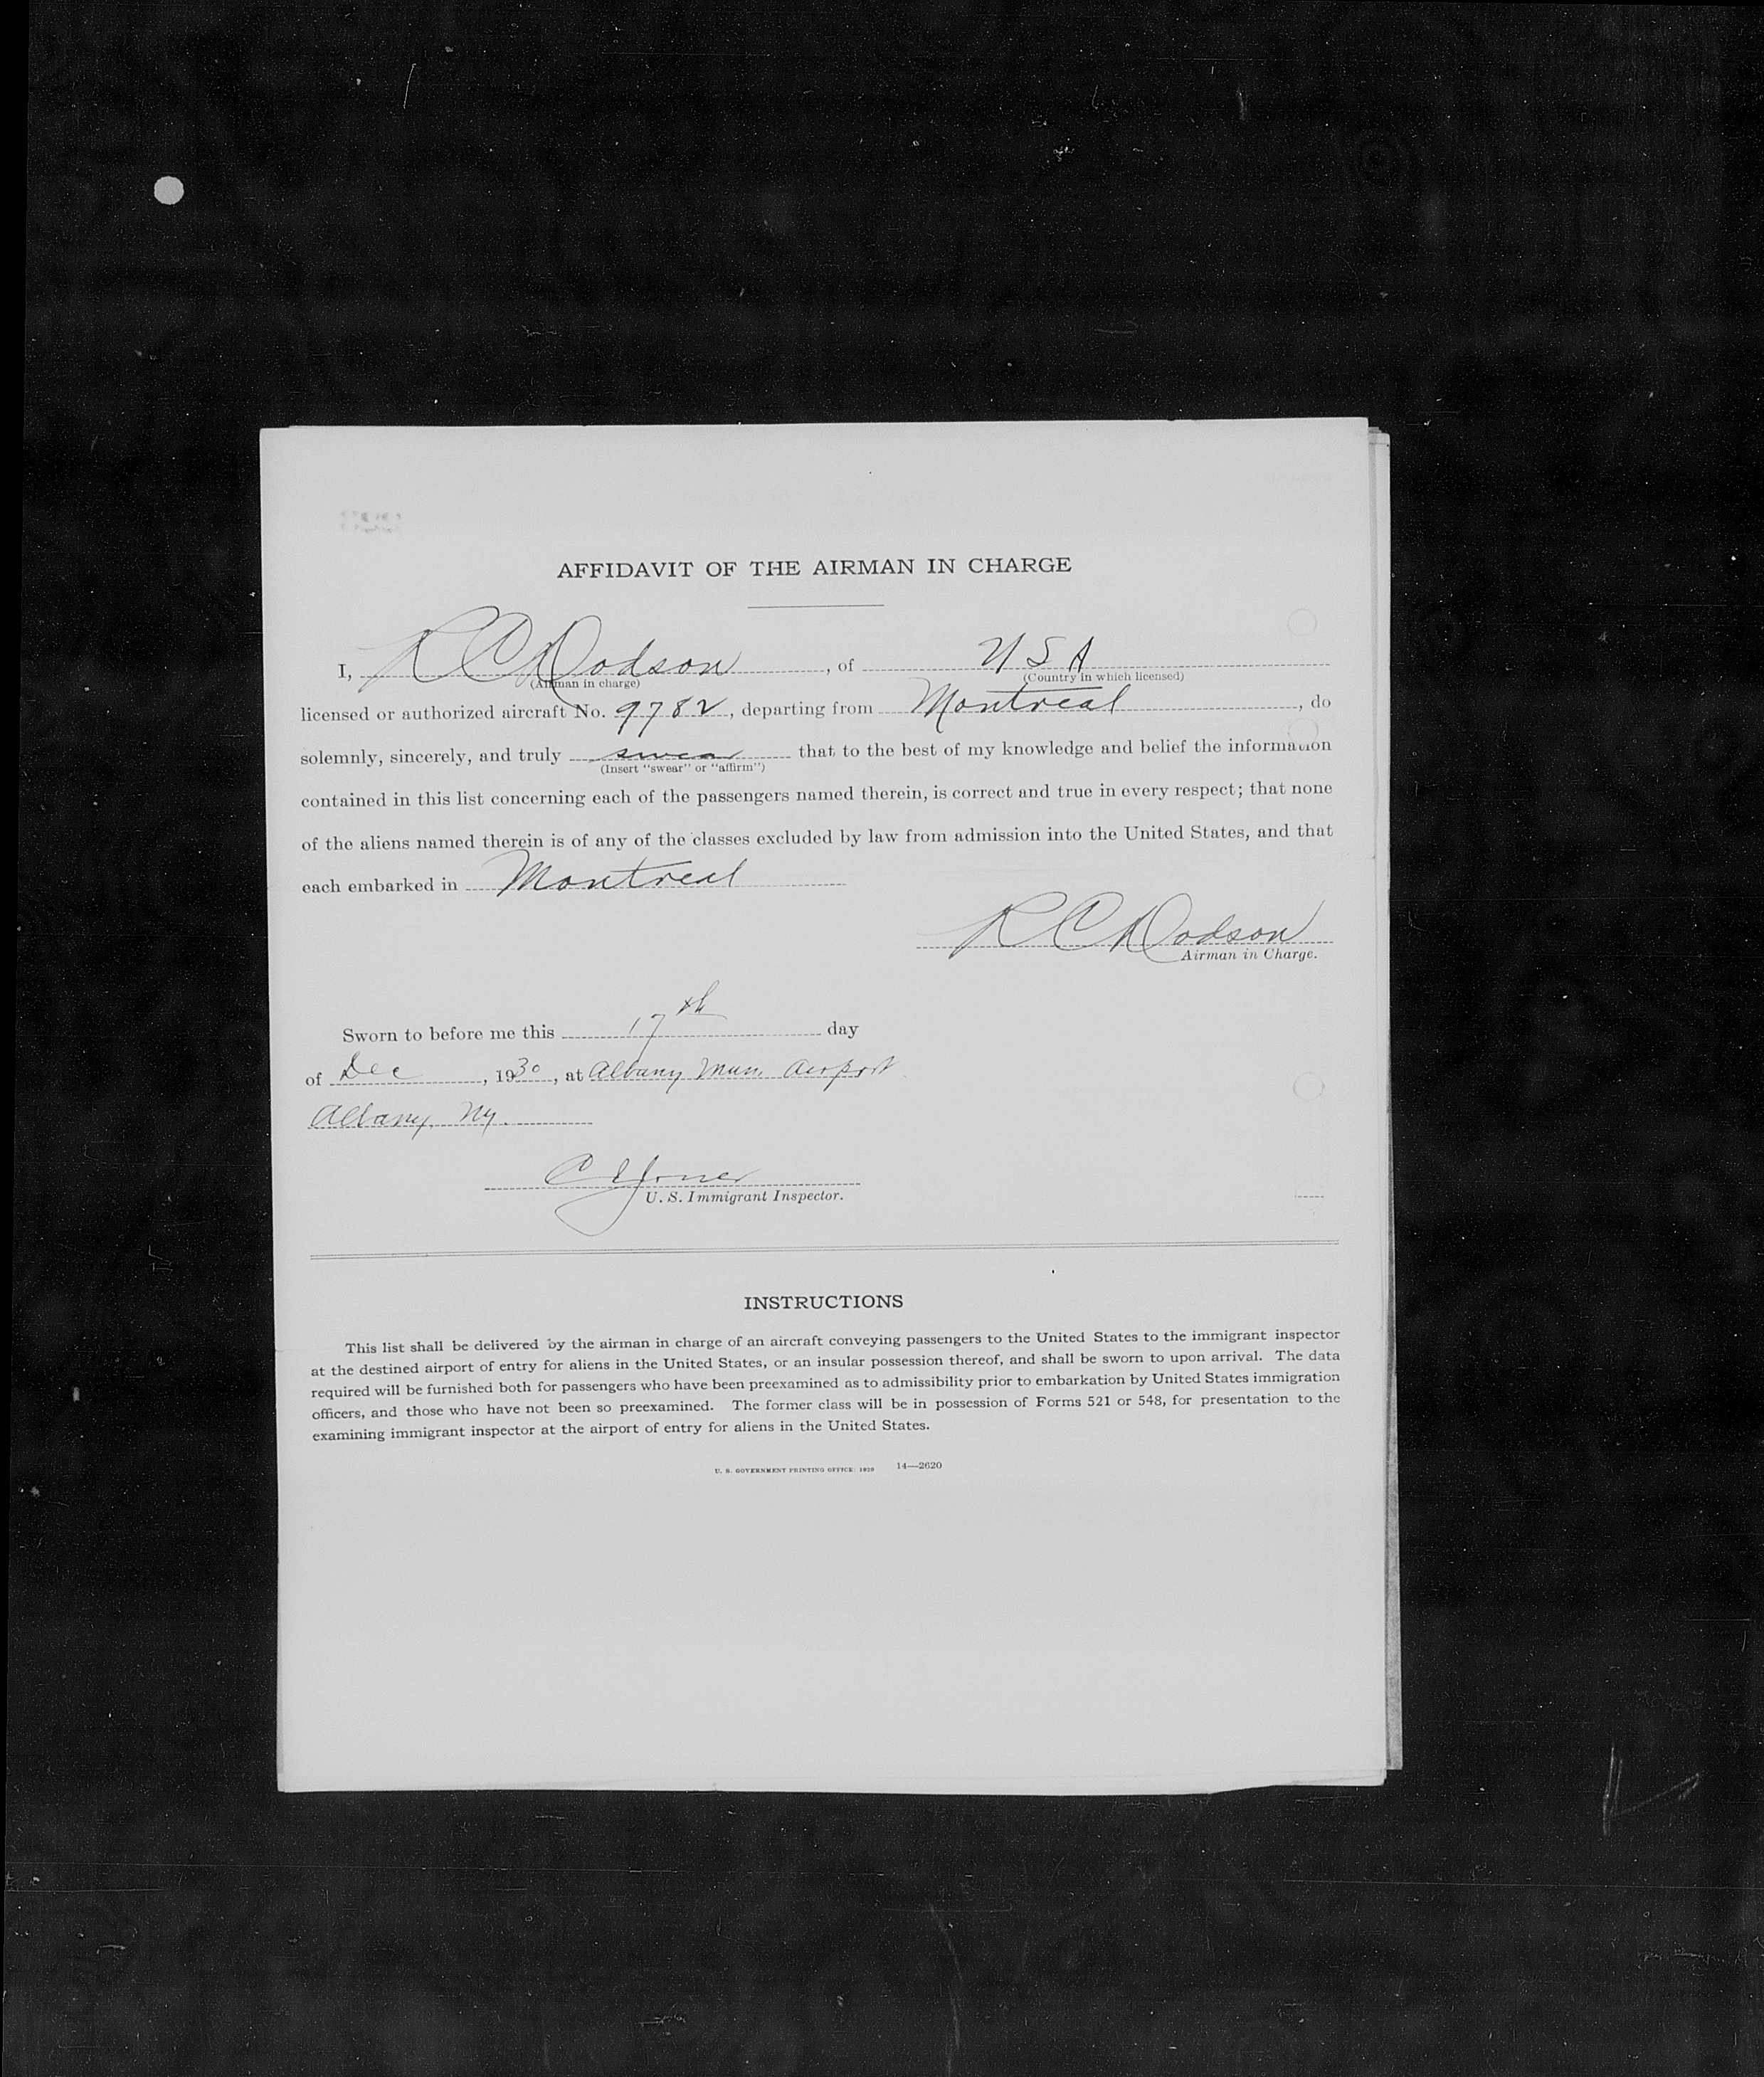 AFFIDAVIT OF THE AIRMAN IN CHARGE
I, R C Dodson, of U S A
(Airman in charge) (Country in which licensed)
licensed or authorized aircraft No. 9782, departing from Montreal, do
solemnly, sincerely, and truly swear that to the best of my knowledge and belief the information
(Insert "swear" or "affirm")
contained in this list concerning each of the passengers named therein, is correct and true in every respect; that none
of the aliens named therein is of any of the classes excluded by law from admission into the United States, and that
each embarked in Montreal
R C Dodson
Airman in Charge.
Sworn to before me this 17th day
of Dec, 1930, at Albany Mun. Airport
Albany, NY.
U. S. Immigrant Inspector.
INSTRUCTIONS
This list shall be delivered by the airman in charge of an aircraft conveying passengers to the United States to the immigrant inspector
at the destined airport of entry for aliens in the United States, or an insular possession thereof, and shall be sworn to upon arrival. The data
required will be furnished both for passengers who have been preexamined as to admissibility prior to embarkation by United States immigration
officers, and those who have not been so preexamined. The former class will be in possession of Forms 521 or 548, for presentation to the
examining immigrant inspector at the airport of entry for aliens in the United States.
U. S. GOVERNMENT PRINTING OFFICE: 1929 14—2620